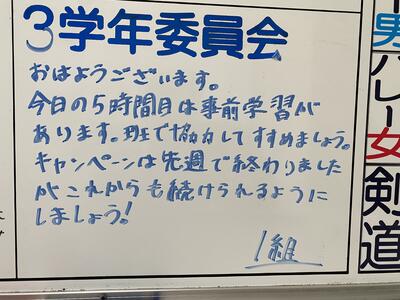 3学年委員会
おはようございます。
今日の5時間目は事前学習が
あります。班で協力してすすめましょう。
キャンペーンは先週で終わりました
がこれからも続けられるように
しましょう!
1組
男
バレー女
剣道